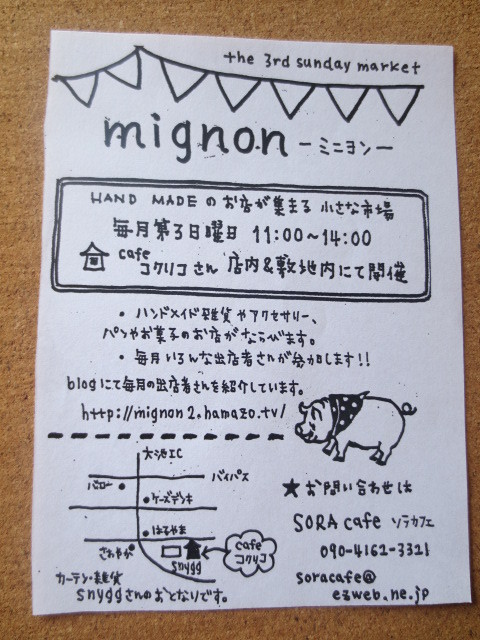 the 3rd sunday market
mignon -ミニヨン-
HAND MADEのお店が集まる 小さな市場
毎月第3日曜日 11:00~14:00
cafe
コクリコさん 店内&敷地内にて開催
・ハンドメイド雑貨やアクセサリー、
パンやお菓子のお店がならびます。
・毎月いろんな出店者さんが参加します!!
blogにて毎月の出店者さんを紹介しています。
http://mignon2.hamazo.tv/
大池IC
バロー
バイパス
ケーズデンキ
はるやま
さわやか
snygg
cafe
コクリコ
カーテン・雑貨
snyggさんのおとなりです。
★お問い合わせは
SORA cafe ソラカフェ
090-4162-3321
soracafe@
ezweb.ne.jp